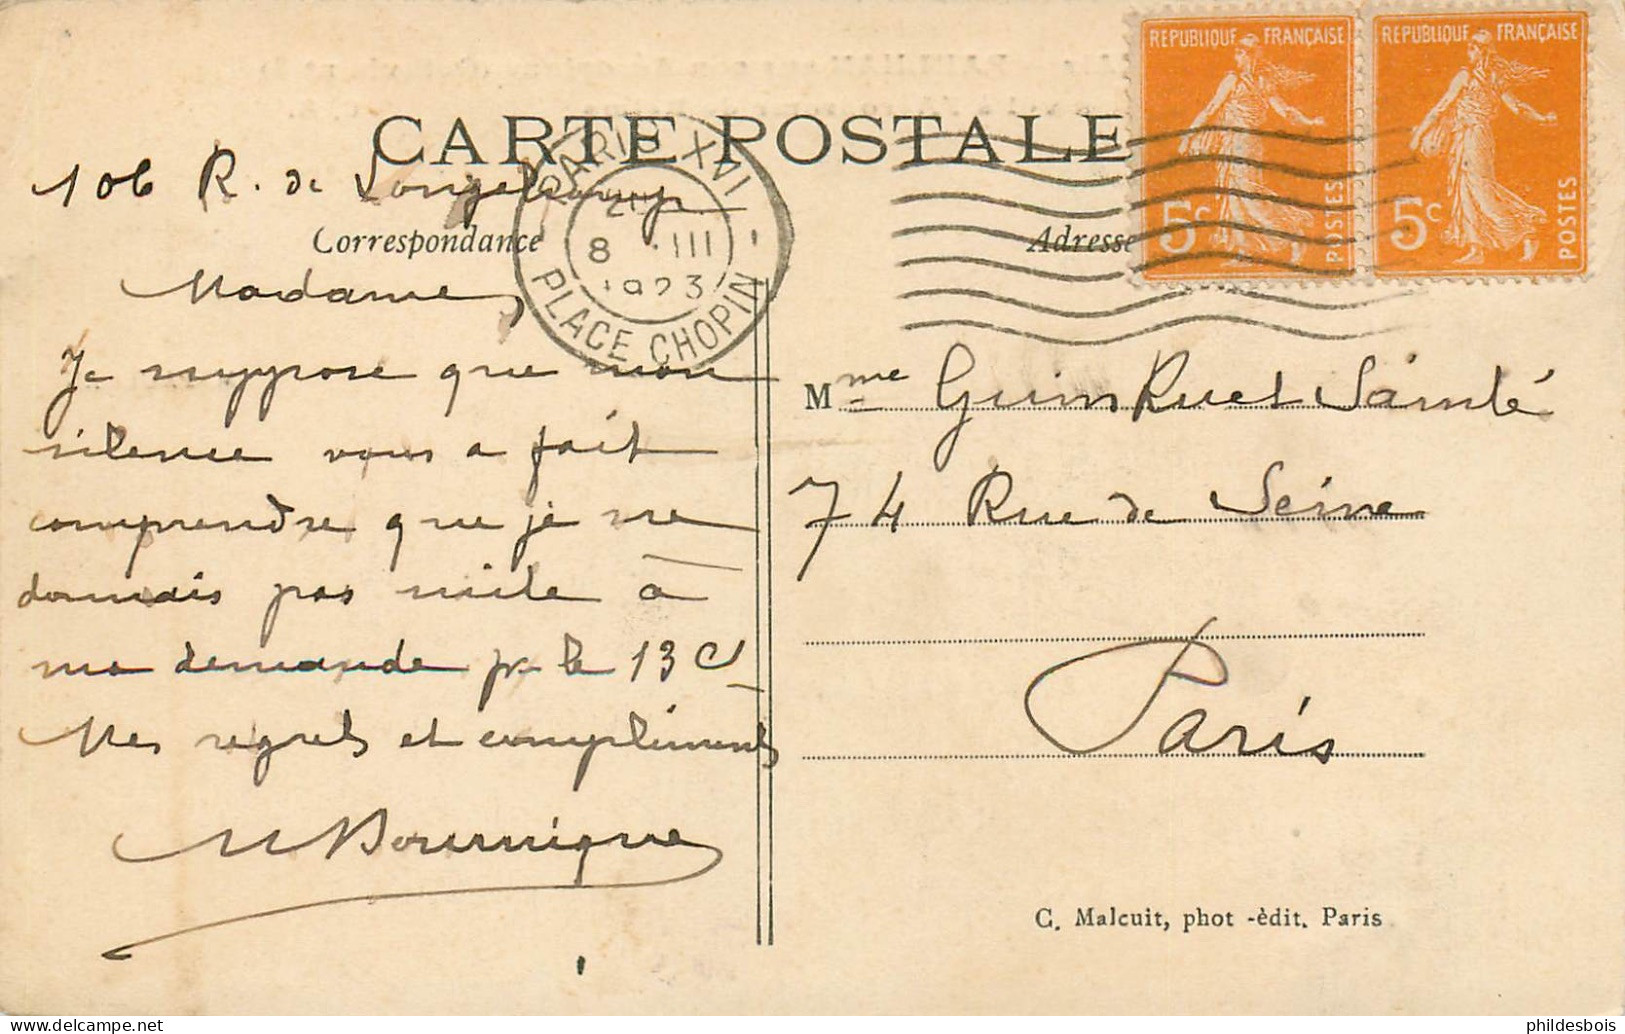 CARTE POSTALE
REPUBLIQUE FRANÇAISE
5c POSTES
REPUBLIQUE FRANÇAISE
5c POSTES
PARIS XVI
8 III
1923
PLACE CHOPIN
106 R. de Longchamp
Correspondance
Madame,
Je suppose que mon
silence vous a fait
comprendre que je ne
donnais pas suite à
ma demande pr le 13 Ct
Mes regrets et compliments
Adresse
Mme
74 Rue de Seine
Paris
C. Malcuit, phot -èdit. Paris
phildesbois